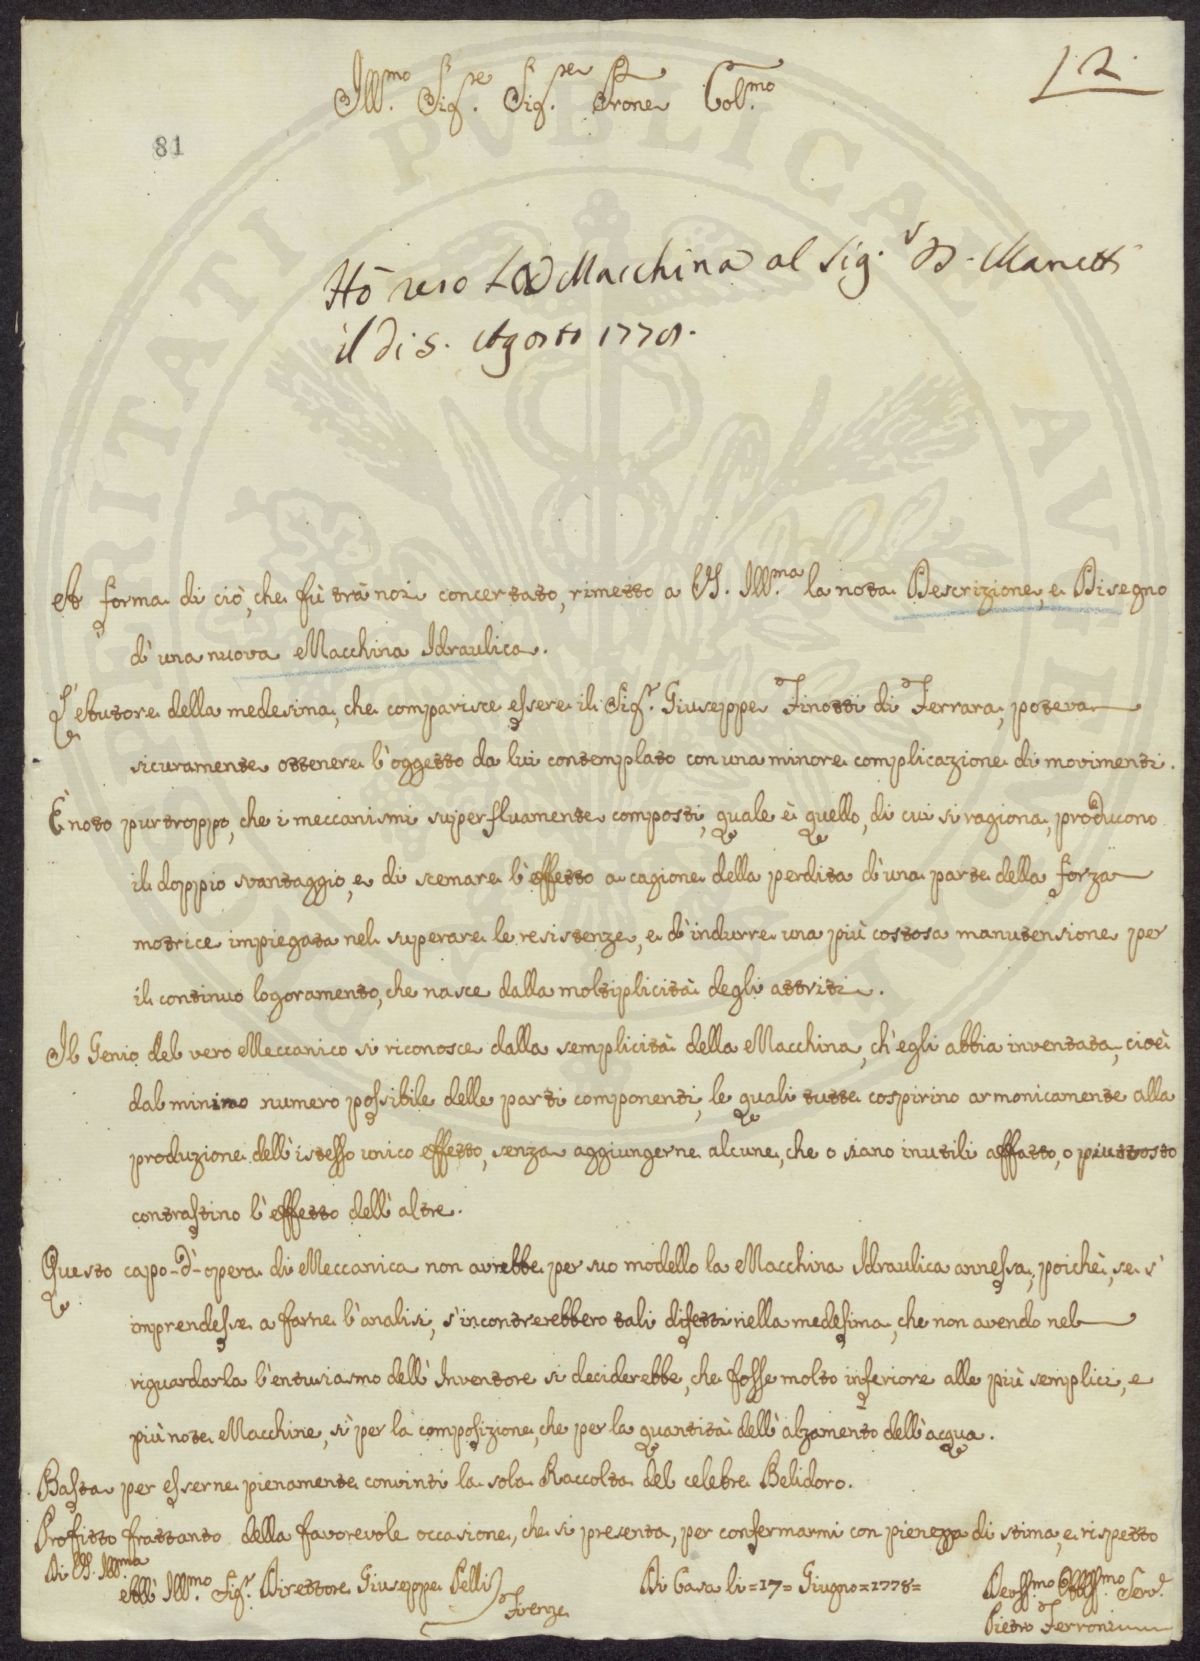 12.
Ill.mo Sig.re Sig.re Prone Col.mo
81
PVBLICAE
PROSPERITATI
Hò reso La Macchina al Sig.r D. Manetti
il dì 5. Agosto 1778.
A forma di ciò, che fù trà noi concertato, rimetto a VS. Ill.ma la nota Descrizione, e Disegno
d'una nuova Macchina Idraulica.
L'Autore della medesima, che comparisce essere il Sig.r Giuseppe Finotti di Ferrara, poteva
sicuramente ottenere l'oggetto da lui contemplato con una minore complicazione di movimenti.
È noto purtroppo, che i meccanismi superfluamente composti, quale è quello, di cui si ragiona, producono
il doppio svantaggio, e di scemare l'effetto a cagione della perdita d'una parte della forza
motrice impiegata nel superare le resistenze, e d'indurre una più costosa manutensione per
il continuo logoramento, che nasce dalla moltiplicità degli attriti.
Il Genio del vero Meccanico si riconosce dalla semplicità della Macchina, ch'egli abbia inventata, cioè
dal minimo numero possibile delle parti componenti, le quali tutte cospirino armonicamente alla
produzione dell'istesso unico effetto, senza aggiungerne alcune, che o siano inutili affatto, o piuttosto
contrastino l'effetto dell'altre.
Questo capo-d'-opera di Meccanica non avrebbe per suo modello la Macchina Idraulica annessa, poichè, se s'
imprendesse a farne l'analisi, s'incontrerebbero tali difetti nella medesima, che non avendo nel
riguardarla l'entusiasmo dell'Inventore si deciderebbe, che fosse molto inferiore alle più semplici, e
più note Macchine, sì per la composizione, che per la quantità dell'alzamento dell'acqua.
Basta per esserne pienamente convinti la sola Raccolta del celebre Belidoro.
Profitto frattanto della favorevole occasione, che si presenta, per confermarmi con pienezza di stima, e rispetto
Di VS. Ill.ma
All' Ill.mo Sig.r Direttore Giuseppe Pelli
Firenze
Di Casa li = 17 = Giugno = 1778 =
Devss.mo Obbligss.mo Serv.e
Pietro Ferroni